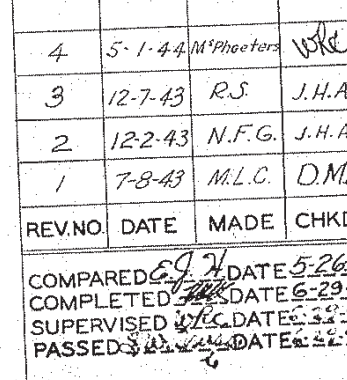 4 5-1-44 McPhaeters
3 12-7-43 R.S. J.H.A
2 12-2-43 N.F.G. J.H.A
1 7-8-43 M.L.C. D.M.
REV.NO. DATE MADE CHKD
COMPARED E.J.H. DATE 5-26
COMPLETED DATE 6-29
SUPERVISED DATE
PASSED DATE